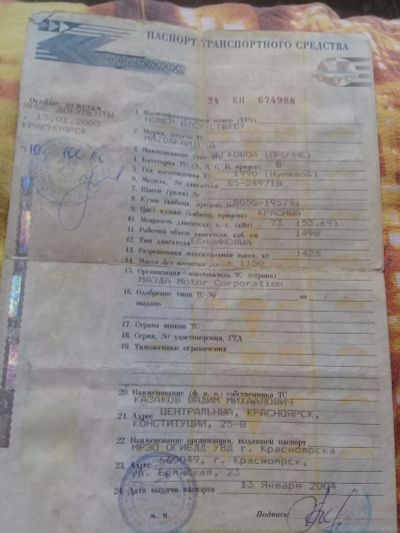 ПАСПОРТ ТРАНСПОРТНОГО СРЕДСТВА
24 ЕН 674988
Особые отметки
ДОКУМЕНТЫ
13.01.2003
КРАСНОЯРСК
1. Идентификационный номер (VIN)
НОМЕР ОТСУТСТВУЕТ
2. Марка, модель ТС
3. Наименование (тип ТС) ЛЕГКОВОЙ (ПРОЧИЕ)
4. Категория ТС (A, B, C, D, прицеп) B
5. Год изготовления ТС 1990 (Нулевой)
6. Модель, № двигателя B5-249718
7. Шасси (рама) №
8. Кузов (кабина, прицеп) № BG5S-195791
9. Цвет кузова (кабины, прицепа) КРАСНЫЙ
10. Мощность двигателя, л. с. (кВт) 73 (53.69)
11. Рабочий объем двигателя, куб. см 1498
12. Тип двигателя БЕНЗИНОВЫЙ
13. Разрешенная максимальная масса, кг 1425
14. Масса без нагрузки, кг 1150
15. Организация-изготовитель ТС (страна)
МАЗДА Motor Corporation
16. Одобрение типа ТС № от
выдано
17. Страна вывоза ТС
18. Серия, № удостоверения, ГТД
19. Таможенные ограничения
20. Наименование (ф. и. о.) собственника ТС
КАЗАКОВ ВАДИМ МИХАЙЛОВИЧ
21. Адрес ЦЕНТРАЛЬНЫЙ, КРАСНОЯРСК,
КОНСТИТУЦИИ, 25-8
22. Наименование организации, выдавшей паспорт
МРЭО ОГИБДД УВД г. Красноярска
23. Адрес 660049, г. Красноярск,
ул. Брянская, 23
24. Дата выдачи паспорта 13 Января 2004
М. П. Подпись